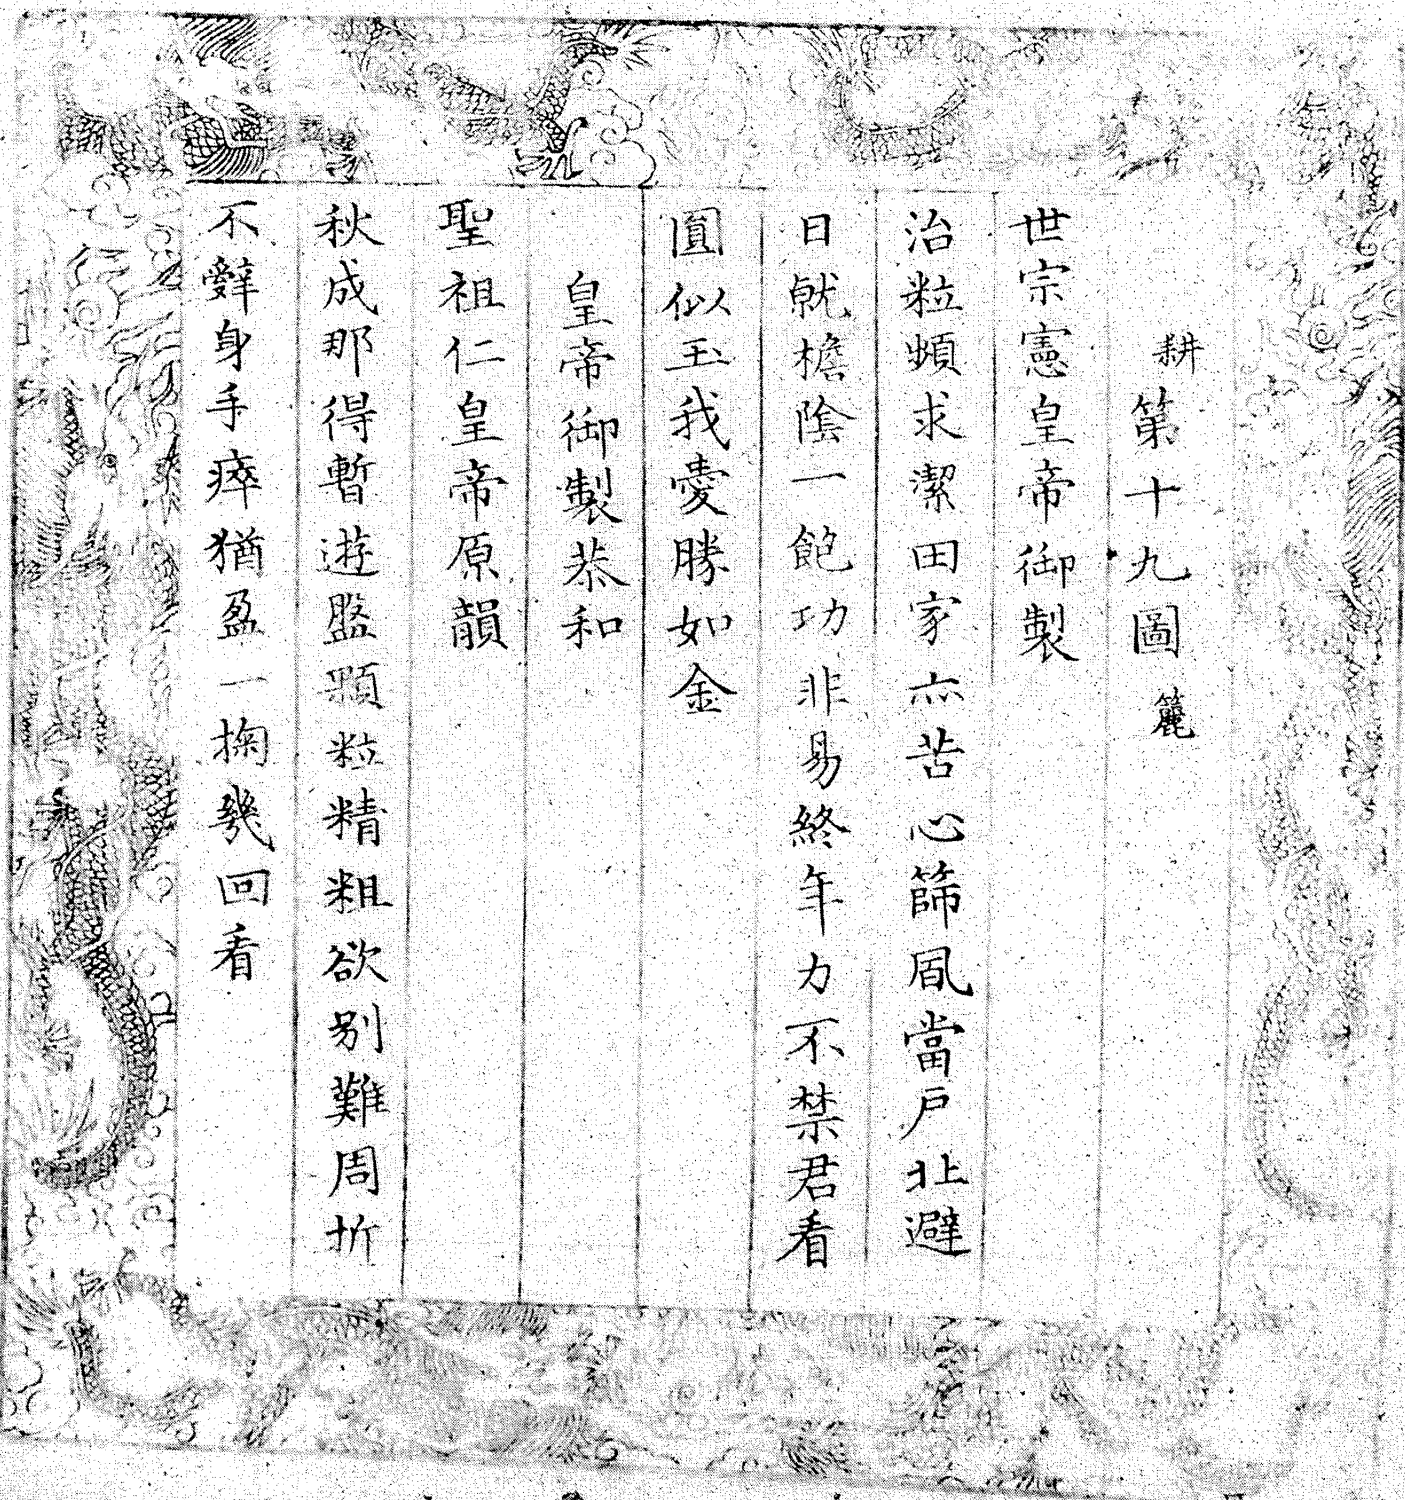 耕第十九圖簏
世宗憲皇帝御製
治粒頻求潔田家亦苦心篩風當戶北避
日就檐陰一飽功非易終年力不禁君看
圓似玉我愛勝如金
皇帝御製恭和
聖祖仁皇帝原韻
秋成那得暫遊盤顆粒精粗欲別難周折
不辭身手瘁猶盈一掬幾回看